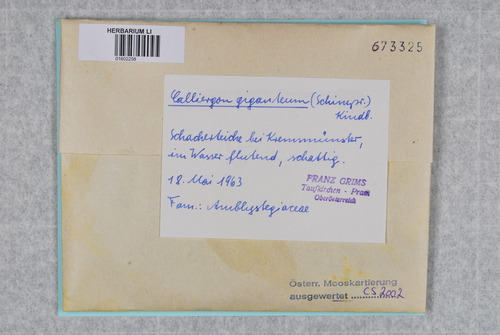 HERBARIUM LI
01602298
673325
Calliergon giganteum (Schimpr.)
Kindb.
Schacherteiche bei Kremsmünster,
im Wasser flutend, schattig.
18. Mai 1963
FRANZ GRIMS
Taufkirchen - Pram
Oberösterreich
Fam.: Amblystegiaceae
Österr. Mooskartierung
ausgewertet CS 2002